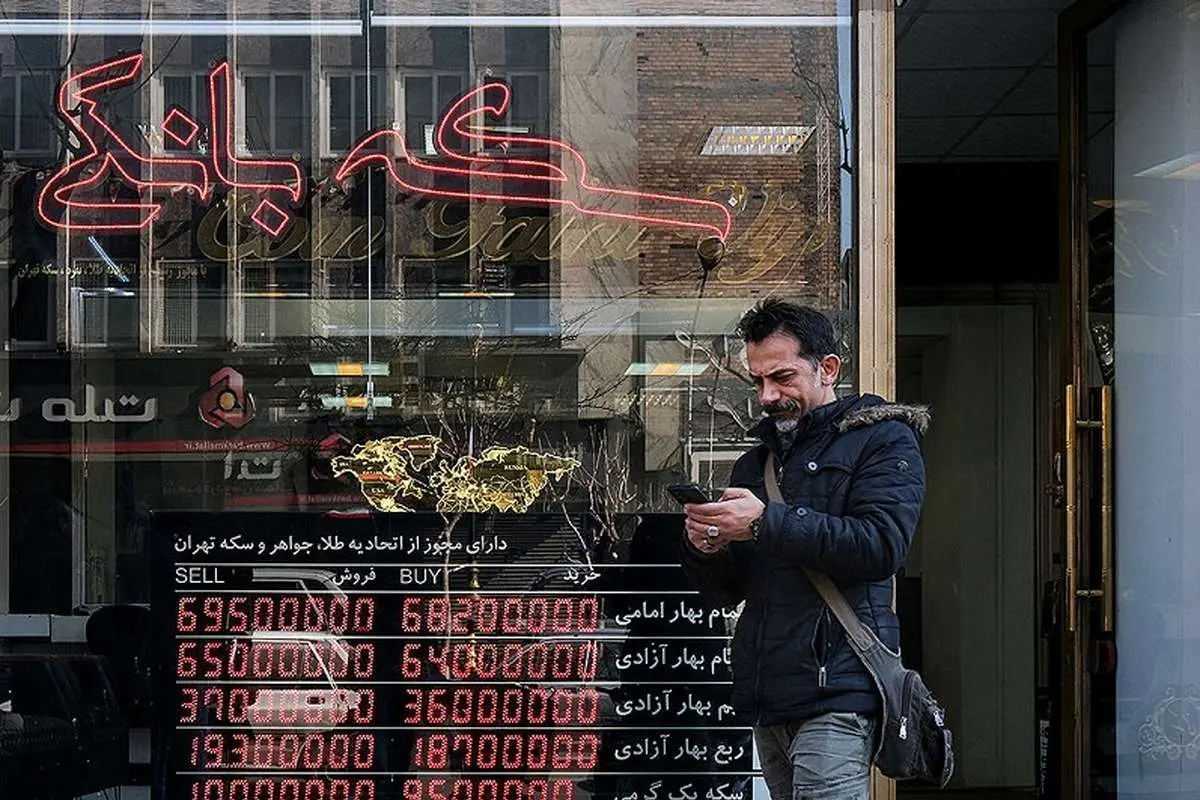 سکه بانکی
Coin
با مجوز رسمی از اتحادیه طلا، نقره، سکه تهران
دارای مجوز از اتحادیه طلا، جواهر و سکه تهران
SELL فروش BUY خرید
69500000 68200000 تمام بهار امامی
65000000 64000000 تمام بهار آزادی
37000000 36000000 نیم بهار آزادی
19300000 18700000 ربع بهار آزادی
10000000 9500000 سکه یک گرمی